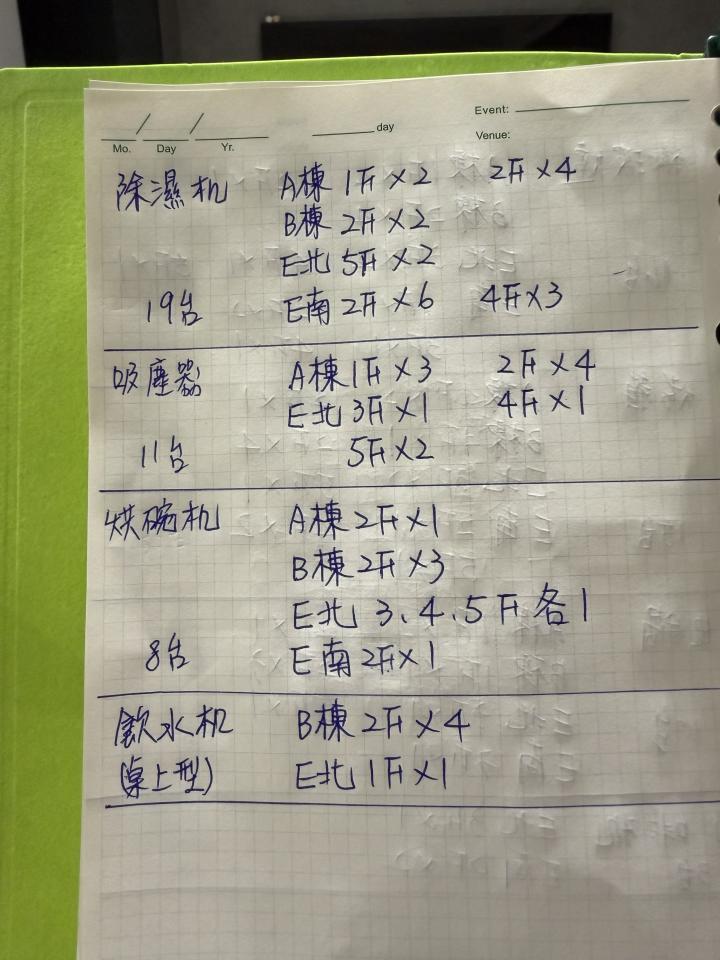 Mo. / Day / Yr. ____day Event:
Venue:
除濕机 A棟 1F×2 2F×4
B棟 2F×2
E北 5F×2
19台 E南 2F×6 4F×3
吸塵器 A棟 1F×3 2F×4
E北 3F×1 4F×1
11台 5F×2
烘碗机 A棟 2F×1
B棟 2F×3
E北 3、4、5F各1
8台 E南 2F×1
飲水机 B棟 2F×4
(桌上型) E北 1F×1